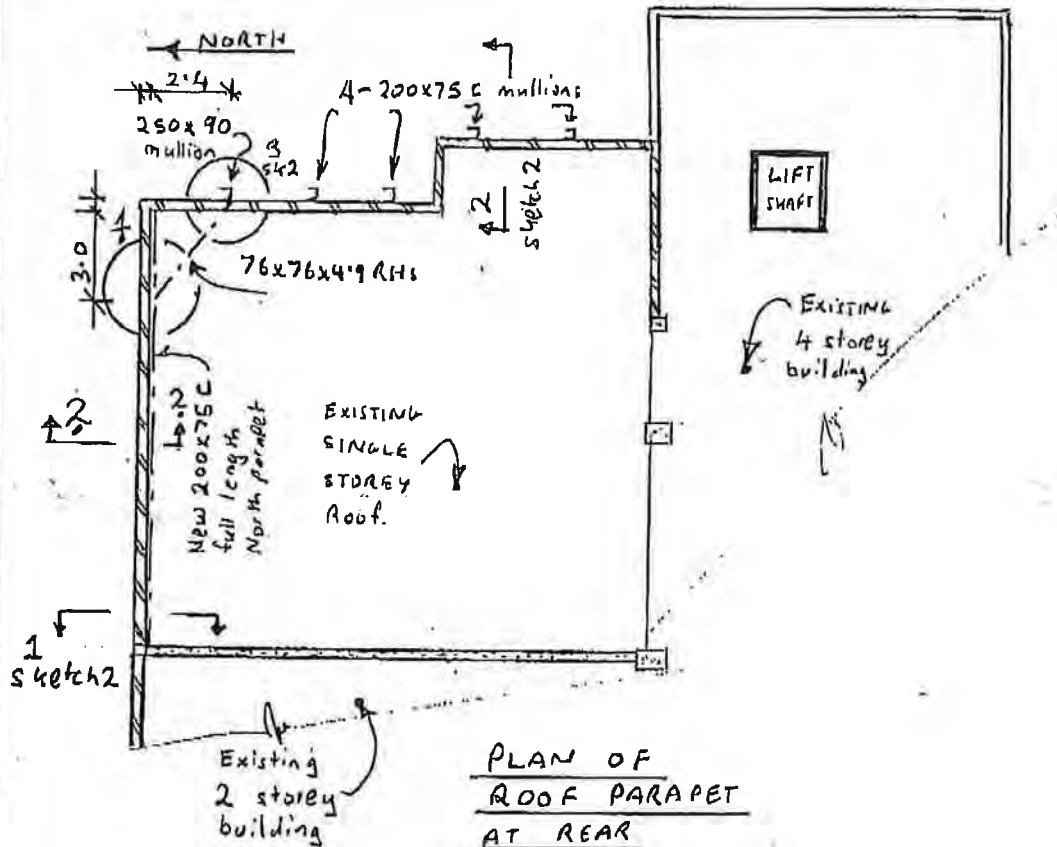 NORTH
2.4
4-200x75 C mullions
250x90
mullion
3
sk2
2
sketch2
LIFT
SHAFT
4
3.0
76x76x4.9 RHS
EXISTING
4 storey
building
2
2
New 200x75 C
full length
North parapet
EXISTING
SINGLE
STOREY
ROOF.
1
sketch2
Existing
2 storey
building
PLAN OF
ROOF PARAPET
AT REAR